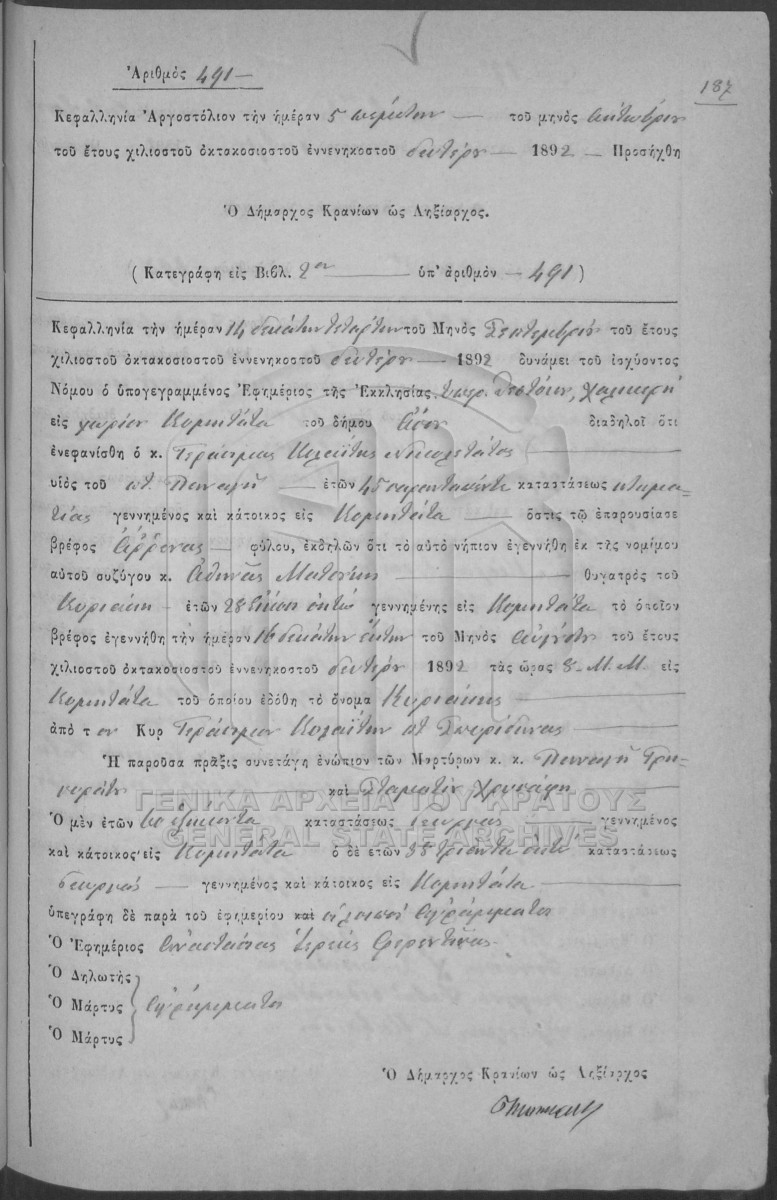 Ἀριθμὸς 491
187
Κεφαλληνία Ἀργοστόλιον τὴν ἡμέραν 5 πέμπτην τοῦ μηνὸς Ὀκτωβρίου
τοῦ ἔτους χιλιοστοῦ ὀκτακοσιοστοῦ ἐννενηκοστοῦ δευτέρου 1892 Προσήχθη
Ὁ Δήμαρχος Κρανίων ὡς Ληξίαρχος.
(Κατεγράφη εἰς Βιβλ. 2ον ὑπ' ἀριθμὸν 491)
Κεφαλληνία τὴν ἡμέραν 14 δεκάτην τετάρτην τοῦ Μηνὸς Σεπτεμβρίου τοῦ ἔτους
χιλιοστοῦ ὀκτακοσιοστοῦ ἐννενηκοστοῦ δευτέρου 1892 δυνάμει τοῦ ἰσχύοντος
Νόμου ὁ ὑπογεγραμμένος Ἐφημέριος τῆς Ἐκκλησίας
εἰς χωρίον Κομητάτα τοῦ δήμου διαδηλοῖ ὅτι
ἐνεφανίσθη ὁ κ. Γεράσιμος Κολαΐτης Νικολετάτος
υἱὸς τοῦ ποτ. Παναγῆ ἐτῶν 45 σαρανταπέντε καταστάσεως κτημα-
τίας γεννημένος καὶ κάτοικος εἰς Κομητάτα ὅστις τῷ ἐπαρουσίασε
βρέφος ἄῤῥενος φύλου, ἐκδηλῶν ὅτι τὸ αὐτὸ νήπιον ἐγεννήθη ἐκ τῆς νομίμου
αὐτοῦ συζύγου κ. Ἀθηνᾶς θυγατρὸς τοῦ
Κυριάκη ἐτῶν 28 εἴκοσι ὀκτὼ γεννημένης εἰς Κομητάτα τὸ ὁποῖον
βρέφος ἐγεννήθη τὴν ἡμέραν 16 δεκάτην ἕκτην τοῦ Μηνὸς Αὐγούστου τοῦ ἔτους
χιλιοστοῦ ὀκτακοσιοστοῦ ἐννενηκοστοῦ δευτέρου 1892 τὰς ὥρας 8 Μ.Μ. εἰς
Κομητάτα τοῦ ὁποίου ἐδόθη τὸ ὄνομα Κυριάκης
ἀπὸ τον Κυρ Γεράσιμον Κολαΐτην ποτ Σπυρίδωνος
Ἡ παροῦσα πρᾶξις συνετάγη ἐνώπιον τῶν Μαρτύρων κ. κ. Παναγῆ Γρη-
γοράτου καὶ Σταματίου Χρυσάφη
Ὁ μὲν ἐτῶν 60 ἑξήκοντα καταστάσεως γεωργὸς γεννημένος
καὶ κάτοικος εἰς Κομητάτα ὁ δὲ ἐτῶν 38 τριάντα ὀκτὼ καταστάσεως
γεωργὸς γεννημένος καὶ κάτοικος εἰς Κομητάτα
ὑπεγράφη δὲ παρὰ τοῦ ἐφημερίου καὶ οἱ λοιποὶ ἀγράμματοι
Ὁ Ἐφημέριος Ἀναστάσιος Ἱερεὺς Φερεντῖνος
Ὁ Δηλωτὴς
Ὁ Μάρτυς ἀγράμματοι
Ὁ Μάρτυς
ΓΕΝΙΚΑ ΑΡΧΕΙΑ ΤΟΥ ΚΡΑΤΟΥΣ
GENERAL STATE ARCHIVES
Ὁ Δήμαρχος Κρανίων ὡς Ληξίαρχος